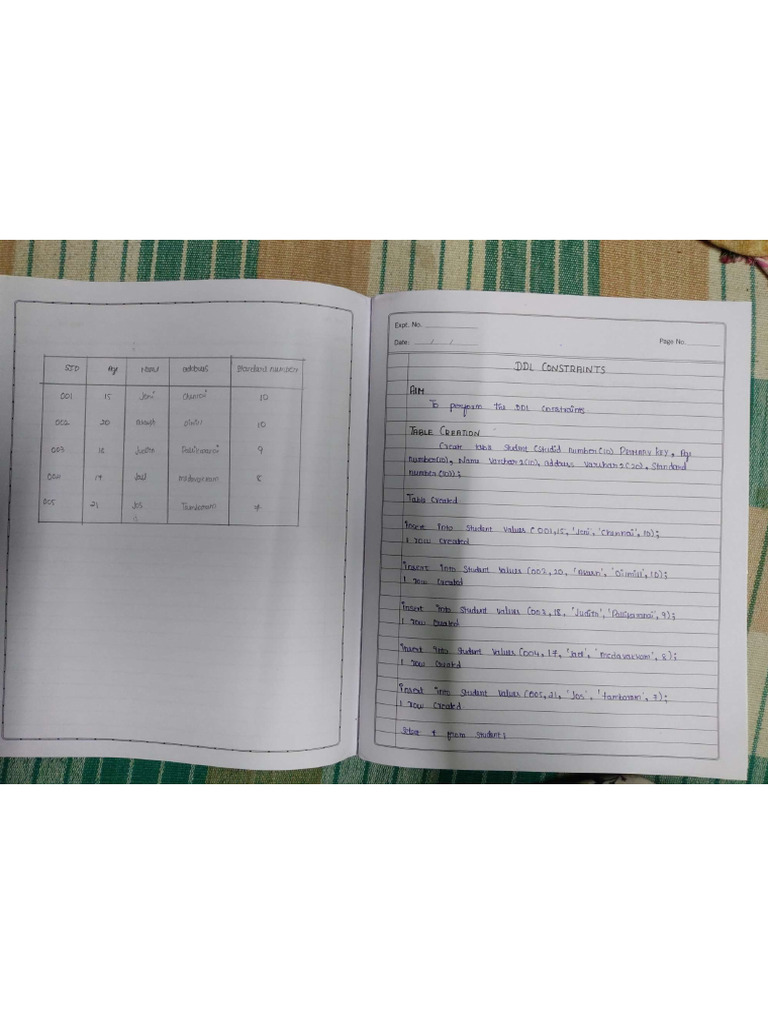 SID Age Name address Standard number
001 15 Joni Chennai 10
002 20 Akash 10
003 18 Judith Pallikaranai 9
004 17 Jael medavakkam 8
005 21 Jos Tambaram 7
Expt. No.
Date: / / Page No.
DDL CONSTRAINTS
AIM
To perform the DDL constraints
TABLE CREATION
Create table student (Studid number(10) PRIMARY KEY, Age
number(10), Name varchar2(10), address varchar2(20), Standard
number(20));
Table created
Insert into student values (001,15, 'Joni', 'Chennai', 10);
1 row created
insert into student values (002, 20, 'Akash', 10);
1 row created
Insert into student values (003, 18, 'Judith', 9);
1 row created
Insert into student values (004, 17, 'Jael', 8);
1 row created
Insert into student values (005, 21, 'Jos', 'tambaram', 7);
1 row created
* from student;